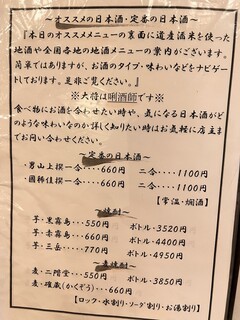 ～オススメの日本酒・定番の日本酒～
『本日のオススメメニューの裏面に道産酒米を使った
地酒や全国各地の地酒メニューの案内がございます。
簡単ではありますが、お酒のタイプ・味わいなどをナビゲート
しております。是非ご覧ください。』
※大将は唎酒師です※
食べ物にお酒を合わせたい時や、気になる日本酒が
どのような味わいなのか詳しく知りたい時はお気軽に店主ま
でお問い合わせください。
～定番の日本酒～
・男山上撰一合‥‥660円 二合‥‥1100円
・國稀佳撰一合‥‥660円 二合‥‥1100円
【常温・燗酒】
焼酎
芋・黒霧島‥‥550円 ボトル・3520円
芋・赤霧島‥‥660円 ボトル・4400円
芋・三岳‥‥‥770円 ボトル・4950円
麦焼酎
麦・二階堂‥‥550円 ボトル・3850円
麦・確蔵(かくぞう)‥‥660円
【ロック・水割り・ソーダ割り・お湯割り】